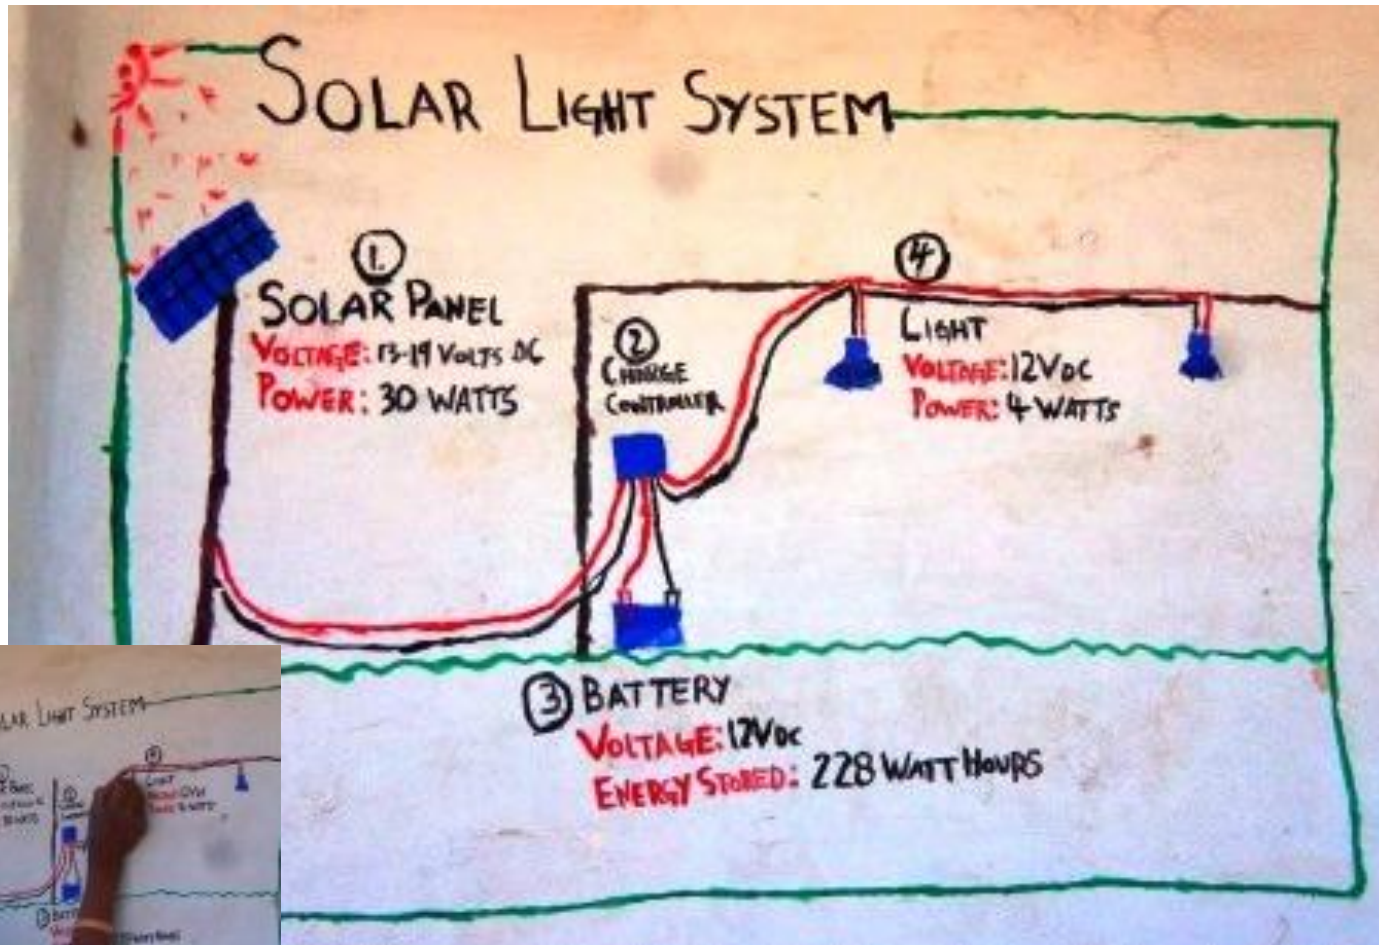 SOLAR LIGHT SYSTEM
1.
SOLAR PANEL
VOLTAGE: 13-19 VOLTS DC
POWER: 30 WATTS
2
CHARGE
CONTROLLER
4
LIGHT
VOLTAGE: 12VDC
POWER: 4 WATTS
3 BATTERY
VOLTAGE: 12VDC
ENERGY STORED: 228 WATT HOURS
LAR LIGHT SYSTEM